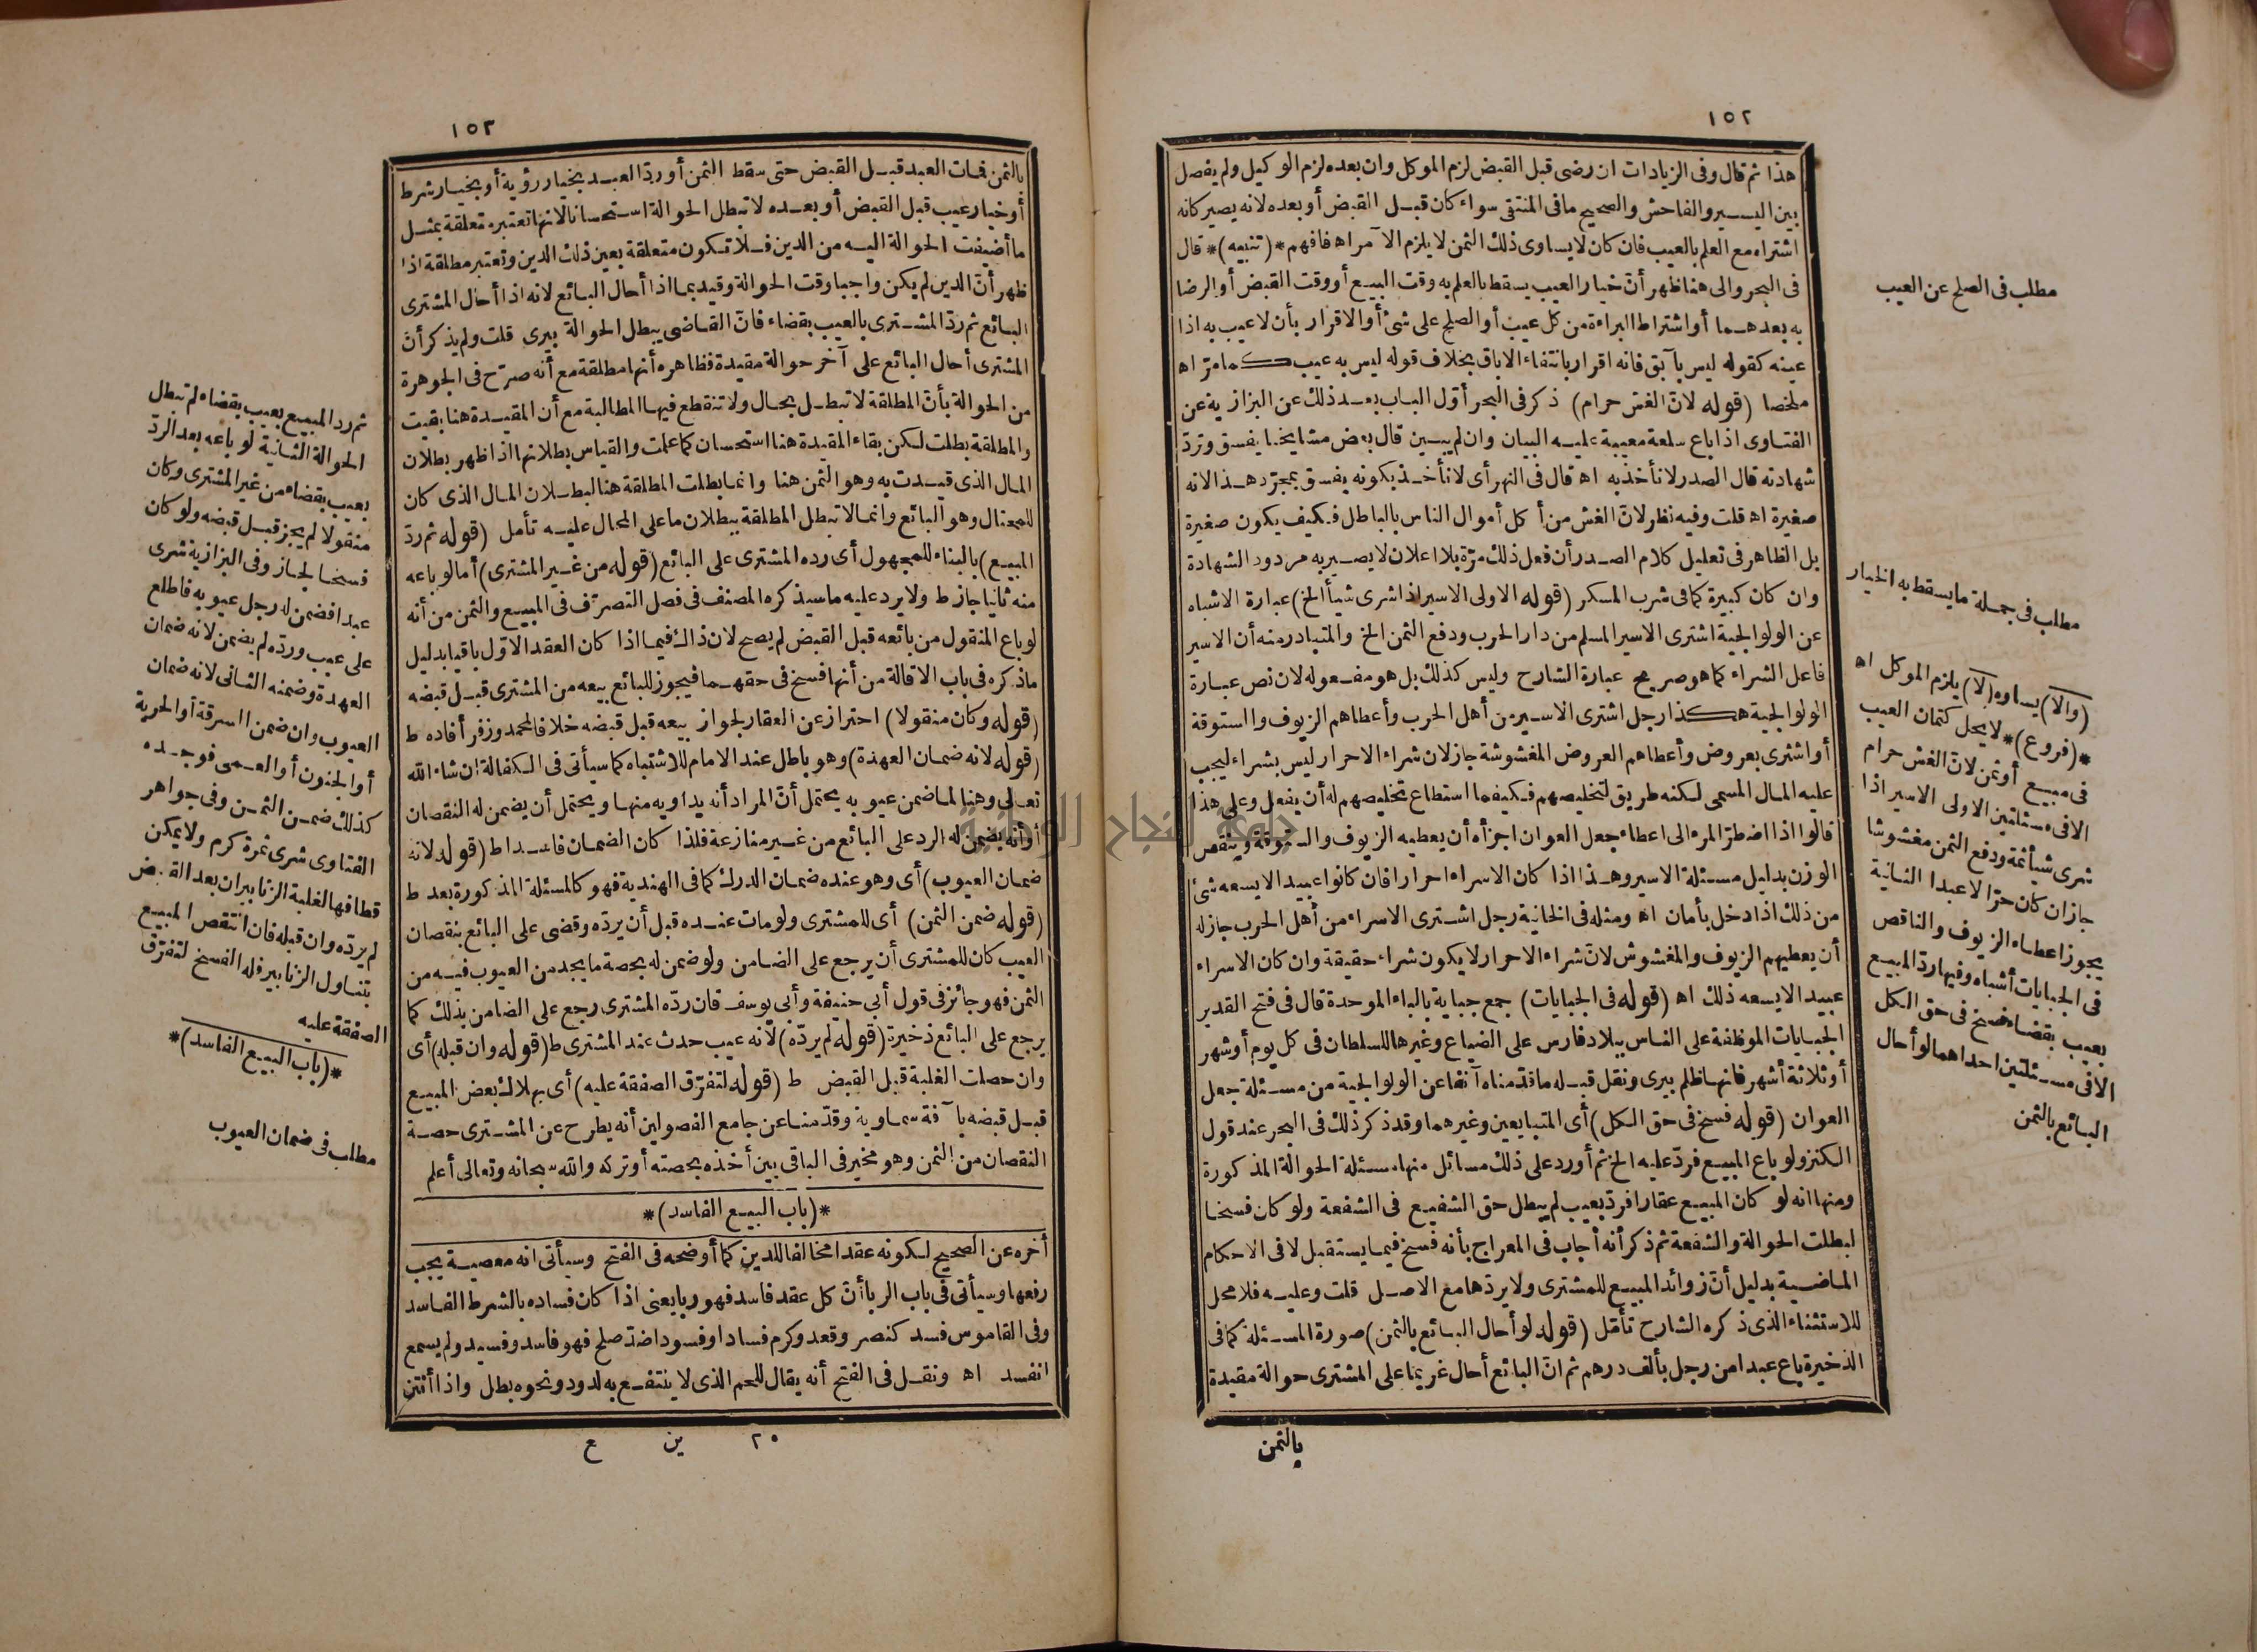 ١٥٢
هذا ثم قال وفى الزيادات ان رضى قبل القبض لزم الموكل وان بعده لزم الوكيل ولم يفصل
بين اليسير والفاحش والصحيح ما فى المنتقى سواء كان قبل القبض أو بعده لانه يصير كانه
اشتراه مع العلم بالعيب فان كان لا يساوى ذلك الثمن لا يلزم الآمر اه فافهم *(تنبيه)* قال
فى البحر والى هنا ظهر أن خيار العيب يسقط بالعلم به وقت البيع أو وقت القبض أو الرضا
به بعدهما أو اشتراط البراءة من كل عيب أو الصلح على شئ أو الاقرار بأن لا عيب به اذا
عينه كقوله ليس بآبق فانه اقرار بانتفاء الاباق بخلاف قوله ليس به عيب كما مرّ اه
ملخصا (قوله لانّ الغش حرام) ذكر فى البحر أوّل الباب بعد ذلك عن البزازية عن
الفتاوى اذا باع سلعة معيبة عليه البيان وان لم يبين قال بعض مشايخنا يفسق وتردّ
شهادته قال الصدر لا نأخذ به اه قال فى النهر أى لا نأخذ بكونه يفسق بمجرّد هذا لانه
صغيرة اه قلت وفيه نظر لانّ الغش من أكل أموال الناس بالباطل فكيف يكون صغيرة
بل الظاهر فى تعليل كلام الصدر أن فعل ذلك مرّة بلا اعلان لا يصير به مردود الشهادة
وان كان كبيرة كما فى شرب المسكر (قوله الاولى الاسير اذا شرى شيأ الخ) عبارة الاشباه
عن الولوالجية اشترى الاسير المسلم من دار الحرب ودفع الثمن الخ والمتبادر منه أن الاسير
فاعل الشراء كما هو صريح عبارة الشارح وليس كذلك بل هو مفعوله لان نص عبارة
الولوالجية هكذا رجل اشترى الاسير من أهل الحرب وأعطاهم الزيوف والستوقة
أو اشترى بعروض وأعطاهم العروض المغشوشة جاز لان شراء الاحرار ليس بشراء ليجب
عليه المال المسمى لكنه طريق لتخليصهم فكيفما استطاع تخليصهم له أن يفعل وعلى هذا
قالوا اذا اضطرّ المرء الى اعطاء جعل العوان اجزأه أن يعطيه الزيوف والستوقة وينقص
الوزن بدليل مسئلة الاسير وهذا اذا كان الاسراء احرارا فان كانوا عبيدا لا يسعه شئ
من ذلك اذا دخل بأمان اه ومثله فى الخانية رجل اشترى الاسراء من أهل الحرب جاز له
أن يعطيهم الزيوف والمغشوش لانّ شراء الاحرار لا يكون شراء حقيقة وان كان الاسراء
عبيدا لا يسعه ذلك اه (قوله فى الجبايات) جمع جباية بالباء الموحدة قال فى فتح القدير
الجبايات الموظفة على الناس ببلاد فارس على الضياع وغيرها للسلطان فى كل يوم أو شهر
أو ثلاثة أشهر فانها ظلم بيرى ونقل قبله ما قدّمناه آنفا عن الولوالجية من مسئلة جعل
العوان (قوله فسخ فى حق الكل) أى المتبايعين وغيرهما وقد ذكر ذلك فى البحر عند قول
الكنز ولو باع المبيع فردّ عليه الخ ثم أورد على ذلك مسائل منها مسئلة الحوالة المذكورة
ومنها انه لو كان المبيع عقارا فردّ بعيب لم يبطل حق الشفيع فى الشفعة ولو كان فسخا
لبطلت الحوالة والشفعة ثم ذكر أنه أجاب فى المعراج بأنه فسخ فيما يستقبل لا فى الاحكام
الماضية بدليل أنّ زوائد المبيع للمشترى ولا يردّها مع الاصل قلت وعليه فلا محل
للاستثناء الذى ذكره الشارح تأمّل (قوله لو أحال البائع بالثمن) صورة المسئلة كما فى
الذخيرة باع عبدا من رجل بألف درهم ثم انّ البائع أحال غريما على المشترى حوالة مقيدة
بالثمن
مطلب فى الصلح عن العيب
مطلب فى جملة ما يسقط به الخيار
(والا) يساوه (لا) يلزم الموكل اه
*(فروع)* لا يحل كتمان العيب
فى مبيع أو ثمن لانّ الغش حرام
الا فى مسئلتين الاولى الاسير اذا
شرى شيأ ثمة ودفع الثمن مغشوشا
جاز ان كان حرّا لا عبدا الثانية
يجوز اعطاء الزيوف والناقص
فى الجبايات أشباه وفيها ردّ المبيع
بعيب بقضاء فسخ فى حق الكل
الا فى مسئلتين احداهما لو أحال
البائع بالثمن
١٥٣
بالثمن فمات العبد قبل القبض حتى سقط الثمن أو ردّ العبد بخيار رؤية أو بخيار شرط
أو خيار عيب قبل القبض أو بعده لا تبطل الحوالة استحسانا لانها تعتبر متعلقة بمثل
ما أضيفت الحوالة اليه من الدين فلا تكون متعلقة بعين ذلك الدين وتعتبر مطلقة اذا
ظهر أنّ الدين لم يكن واجبا وقت الحوالة وقيد بما اذا أحال البائع لانه اذا أحال المشترى
البائع ثم ردّ المشترى بالعيب بقضاء فانّ القاضى يبطل الحوالة بيرى قلت ولم يذكر أنّ
المشترى أحال البائع على آخر حوالة مقيدة فظاهره أنها مطلقة مع أنه صرّح فى الجوهرة
من الحوالة بأنّ المطلقة لا تبطل بحال ولا تنقطع فيها المطالبة مع أن المقيدة هنا بقيت
والمطلقة بطلت لكن بقاء المقيدة هنا استحسان كما علمت والقياس بطلانها اذا ظهر بطلان
المال الذى قيدت به وهو الثمن هنا وانما بطلت المطلقة هنا لبطلان المال الذى كان
للمحتال وهو البائع وانما لا تبطل المطلقة ببطلان ما على المحال عليه تأمل (قوله ثم ردّ
المبيع) بالبناء للمجهول أى رده المشترى على البائع (قوله من غير المشترى) أما لو باعه
منه ثانيا جاز ط ولا يرد عليه ما سيذكره المصنف فى فصل التصرّف فى المبيع والثمن من أنه
لو باع المنقول من بائعه قبل القبض لم يصح لان ذاك فيما اذا كان العقد الاوّل باقيا بدليل
ما ذكره فى باب الاقالة من أنها فسخ فى حقهما فيجوز للبائع بيعه من المشترى قبل قبضه
(قوله وكان منقولا) احتراز عن العقار لجواز بيعه قبل قبضه خلافا لمحمد وزفر أفاده ط
(قوله لانه ضمان العهدة) وهو باطل عند الامام للاشتباه كما سيأتى فى الكفالة ان شاء الله
تعالى وهنا لما ضمن عيوبه يحتمل أنّ المراد أنه يداويه منها ويحتمل أن يضمن له النقصان
أو أنه يضمن له الرد على البائع من غير منازعة فلذا كان الضمان فاسدا ط (قوله لانه
ضمان العيوب) أى وهو عنده ضمان الدرك كما فى الهندية فهو كالمسئلة المذكورة بعد ط
(قوله ضمن الثمن) أى للمشترى ولو مات عنده قبل أن يردّه وقضى على البائع بنقصان
العيب كان للمشترى أن يرجع على الضامن ولو ضمن له بحصة ما يجد من العيوب فيه من
الثمن فهو جائز فى قول أبى حنيفة وأبى يوسف فان ردّه المشترى رجع على الضامن بذلك كما
يرجع على البائع ذخيرة (قوله لم يردّه) لانه عيب حدث عند المشترى ط (قوله وان قبله) أى
وان حصلت الغلبة قبل القبض ط (قوله لتفرّق الصفقة عليه) أى بهلاك بعض المبيع
قبل قبضه بآفة سماوية وقدّمنا عن جامع الفصولين أنه يطرح عن المشترى حصة
النقصان من الثمن وهو مخير فى الباقى بين أخذه بحصته أو تركه والله سبحانه وتعالى أعلم
*(باب البيع الفاسد)*
أخره عن الصحيح لكونه عقدا مخالفا للدين كما أوضحه فى الفتح وسيأتى انه معصية يجب
رفعها وسيأتى فى باب الربا أنّ كل عقد فاسد فهو ربا يعنى اذا كان فساده بالشرط الفاسد
وفى القاموس فسد كنصر وقعد وكرم فسادا وفسودا ضدّ صلح فهو فاسد وفسيد ولم يسمع
انفسد اه ونقل فى الفتح أنه يقال للحم الذى لا ينتفع به لدود ونحوه بطل واذا أنتن
٢٠ ين ع
ثم رد المبيع بعيب بقضاء لم تبطل
الحوالة الثانية لو باعه بعد الردّ
بعيب بقضاء من غير المشترى وكان
منقولا لم يجز قبل قبضه ولو كان
فسخا لجاز وفى البزازية شرى
عبدا فضمن له رجل عيوبه فاطلع
على عيب وردّه لم يضمن لانه ضمان
العهدة وضمنه الثانى لانه ضمان
العيوب وان ضمن السرقة أو الحرية
أو الجنون أو العمى فوجده
كذلك ضمن الثمن وفى جواهر
الفتاوى شرى ثمرة كرم ولا يمكن
قطافها لغلبة الزنابير ان بعد القبض
لم يردّه وان قبله فان انتقص المبيع
بتناول الزنابير فله الفسخ لتفرّق
الصفقة عليه
*(باب البيع الفاسد)*
مطلب فى ضمان العيوب
جامعة النجاح الوطنية